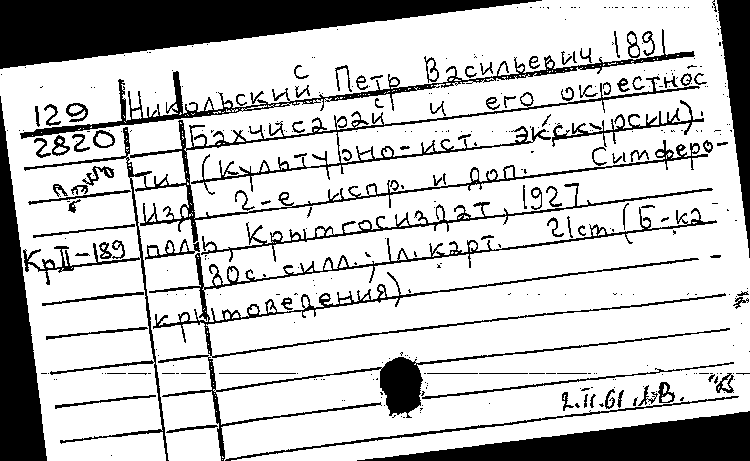 129 Никольский, Петр Васильевич, 1891
2820 Бахчисарай и его окрестнос
ти (культурно-ист. экскурсии).
Изд. 2-е, испр. и доп. Симферо-
КрII-189 поль, Крымгосиздат, 1927.
80с. силл.; 1л. карт. 21см. (Б-ка
крымоведения).
2.II.61.